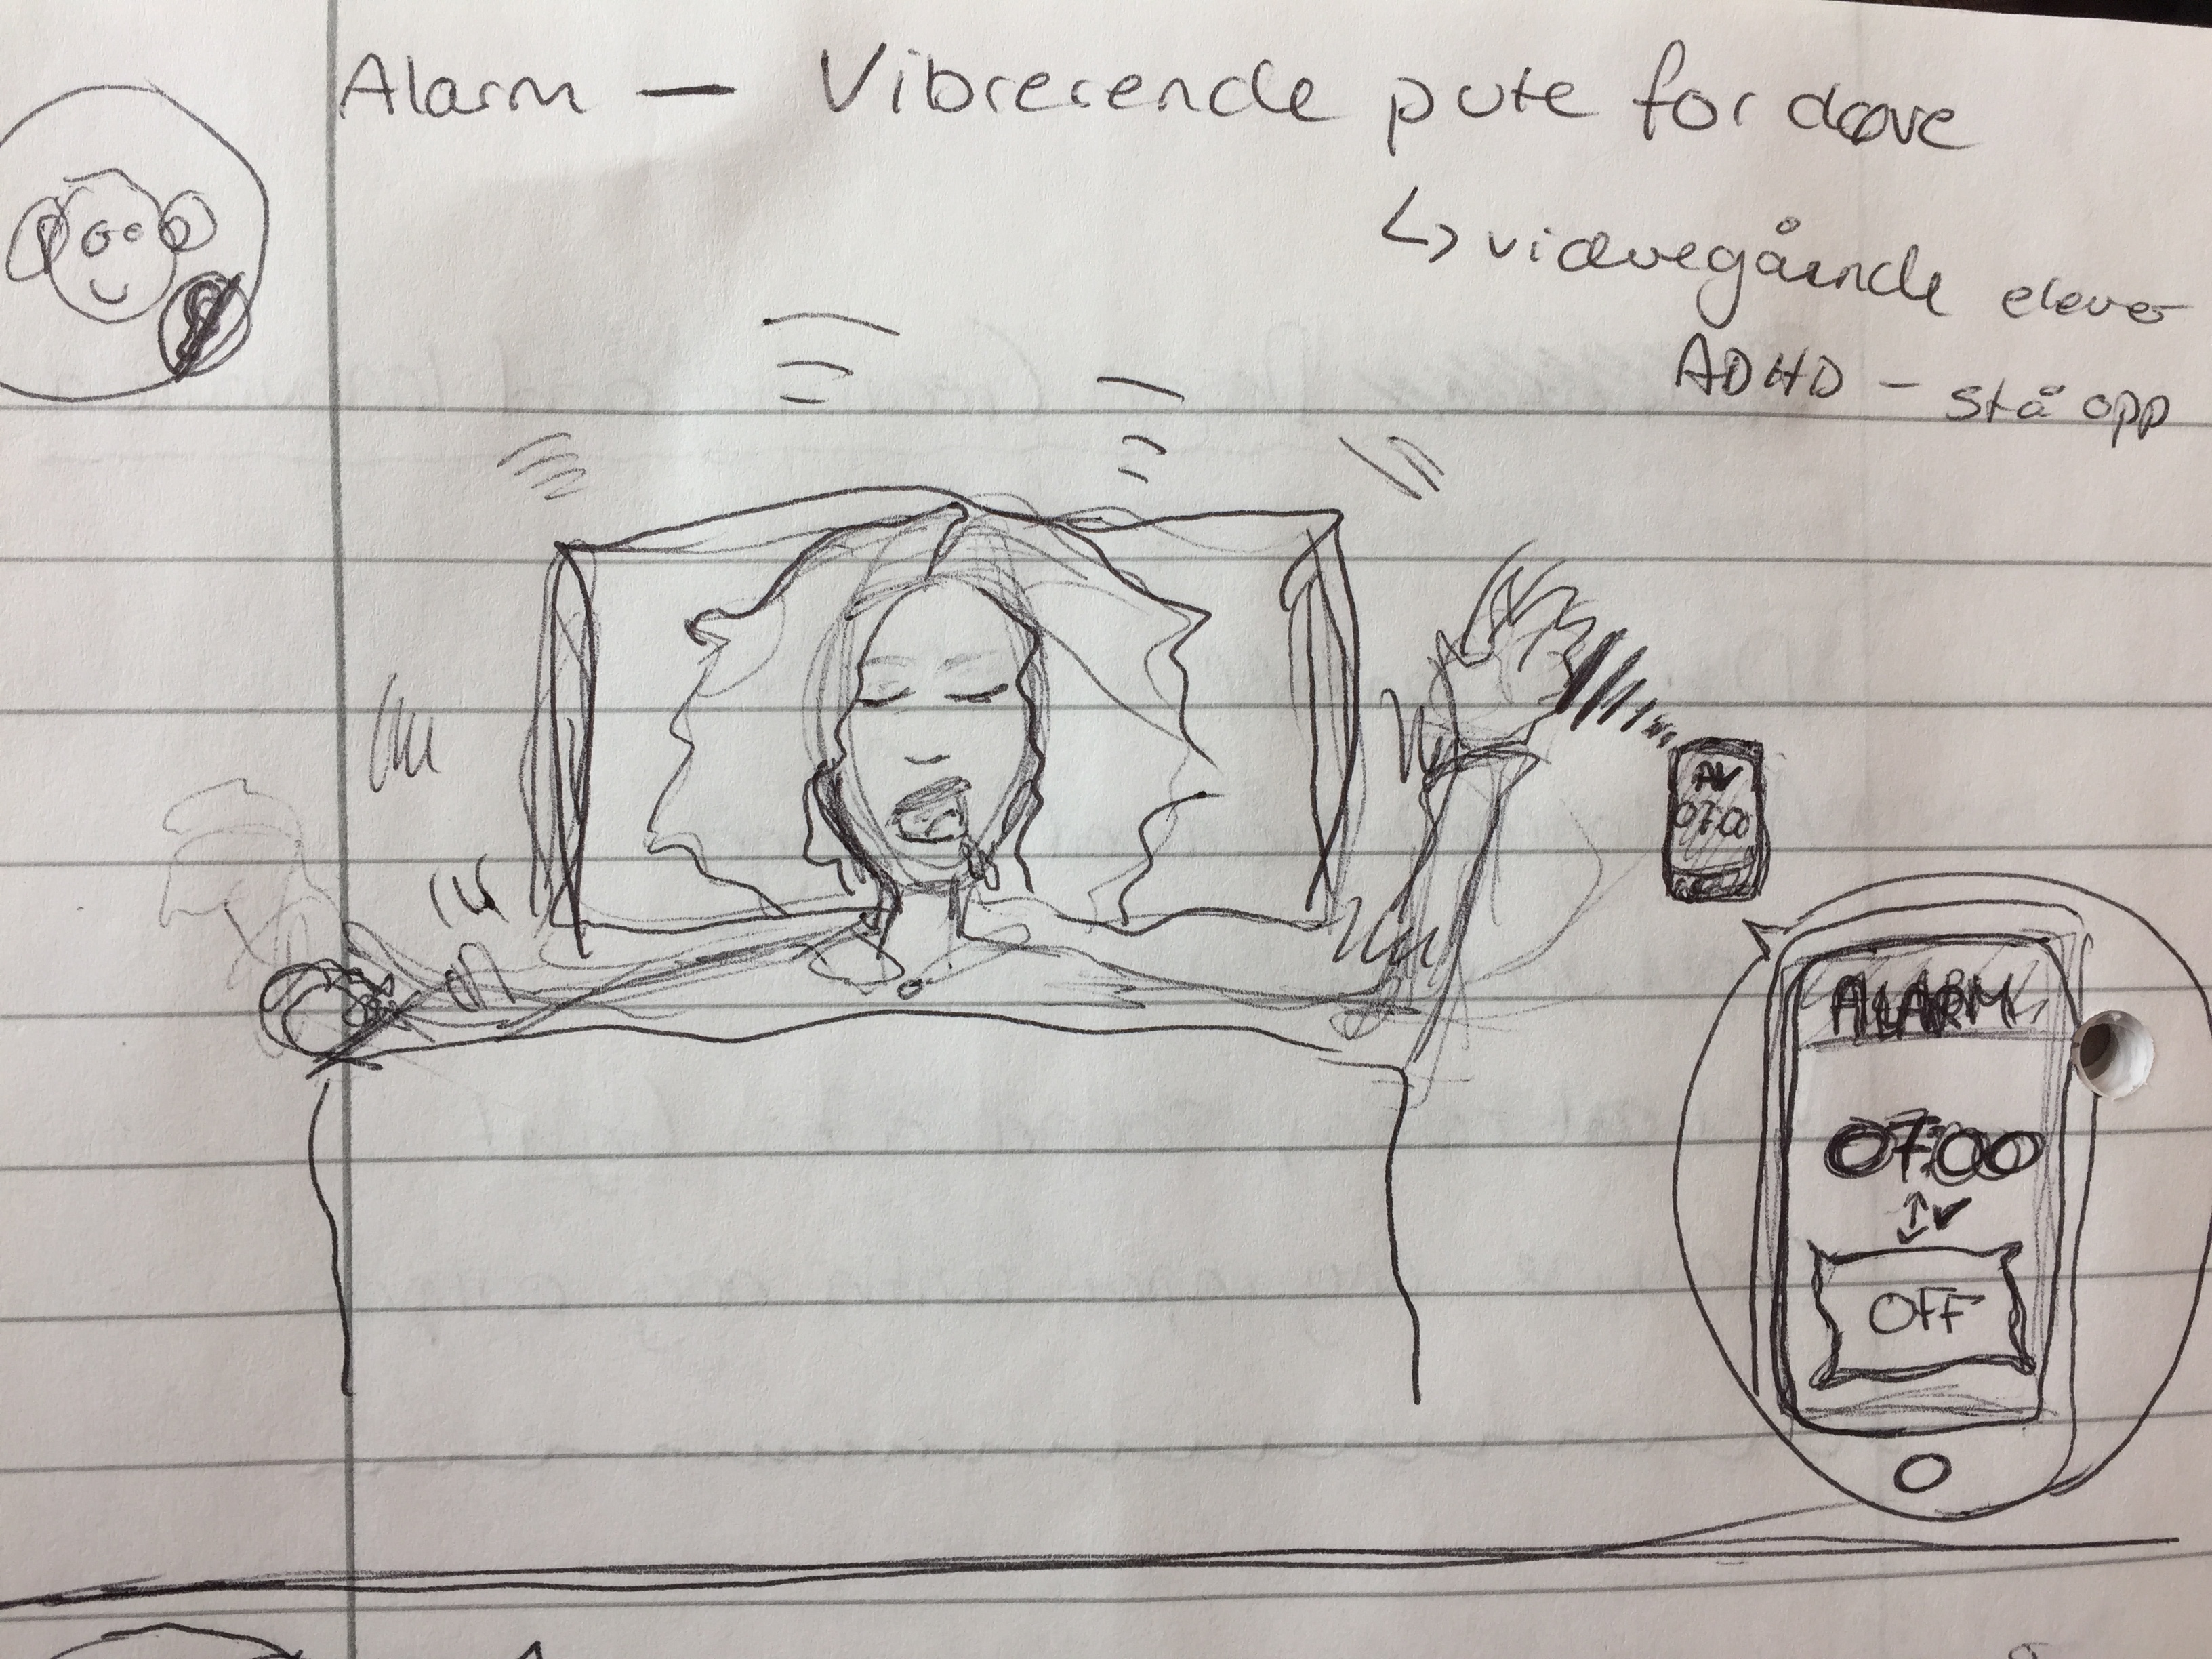 Alarm — Vibrerende pute for døve
↳ videregående elever
ADHD - stå opp
ALARM
07:00
OFF